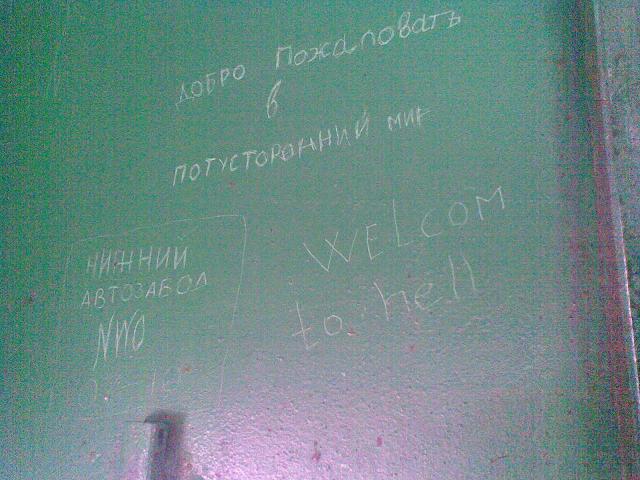 ДОБРО Пожаловать
в
ПОТУСТОРОННИЙ МИР
WELCOM
to hell
НИЖНИЙ
АВТОЗАВОД
NWO